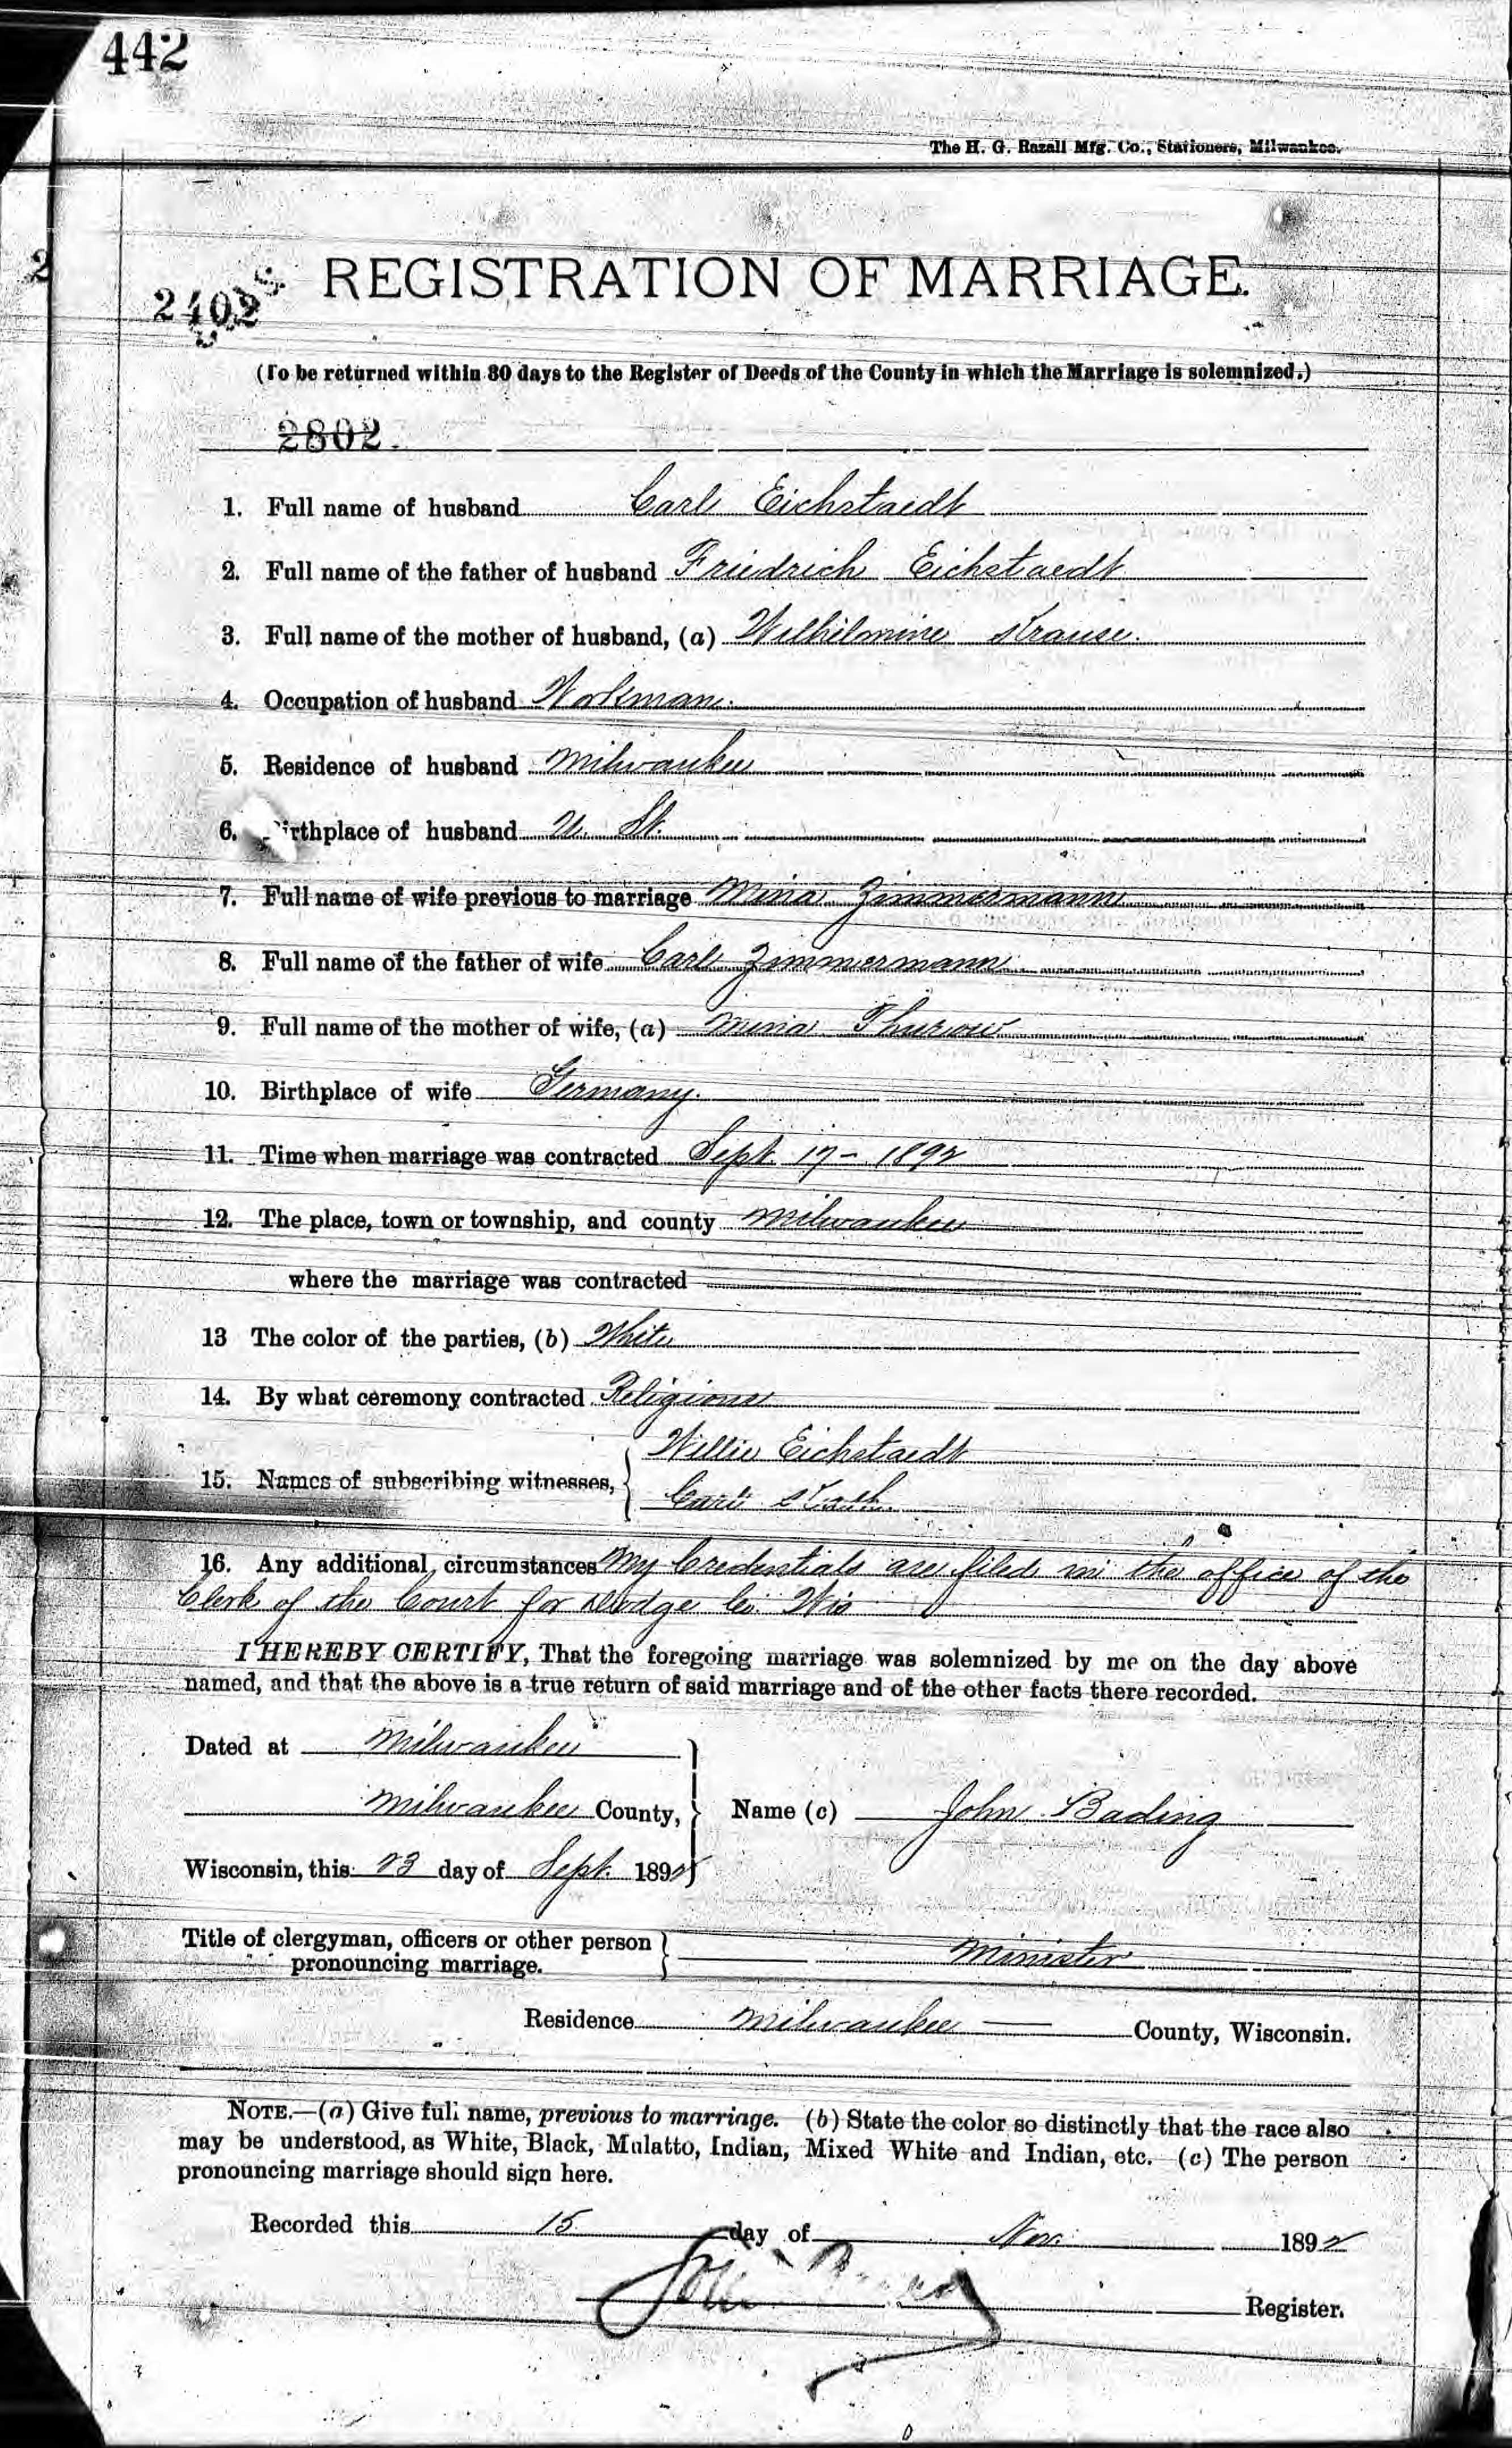 442
The H. G. Razall Mfg. Co., Stationers, Milwaukee.
REGISTRATION OF MARRIAGE.
2402
(To be returned within 30 days to the Register of Deeds of the County in which the Marriage is solemnized.)
2802.
1. Full name of husband Carl Eichstaedt
2. Full name of the father of husband Friedrich Eichstaedt
3. Full name of the mother of husband, (a) Wilhelmine Krause.
4. Occupation of husband Workman.
5. Residence of husband Milwaukee
6. Birthplace of husband U. St.
7. Full name of wife previous to marriage Mina Zimmermann
8. Full name of the father of wife Carl Zimmermann
9. Full name of the mother of wife, (a) Mina Thurow
10. Birthplace of wife Germany.
11. Time when marriage was contracted Sept. 17 - 1892
12. The place, town or township, and county Milwaukee
where the marriage was contracted
13 The color of the parties, (b) White
14. By what ceremony contracted Religious
Willie Eichstaedt
15. Names of subscribing witnesses,
Carl
16. Any additional circumstances My Credentials are filed in the office of the
Clerk of the Court for Dodge Co. Wis
I HEREBY CERTIFY, That the foregoing marriage was solemnized by me on the day above
named, and that the above is a true return of said marriage and of the other facts there recorded.
Dated at Milwaukee
Milwaukee County, Name (c) John Bading
Wisconsin, this 23 day of Sept. 1892
Title of clergyman, officers or other person
pronouncing marriage. Minister
Residence Milwaukee County, Wisconsin.
NOTE.—(a) Give full name, previous to marriage. (b) State the color so distinctly that the race also
may be understood, as White, Black, Mulatto, Indian, Mixed White and Indian, etc. (c) The person
pronouncing marriage should sign here.
Recorded this 15 day of Nov. 1892
Register.